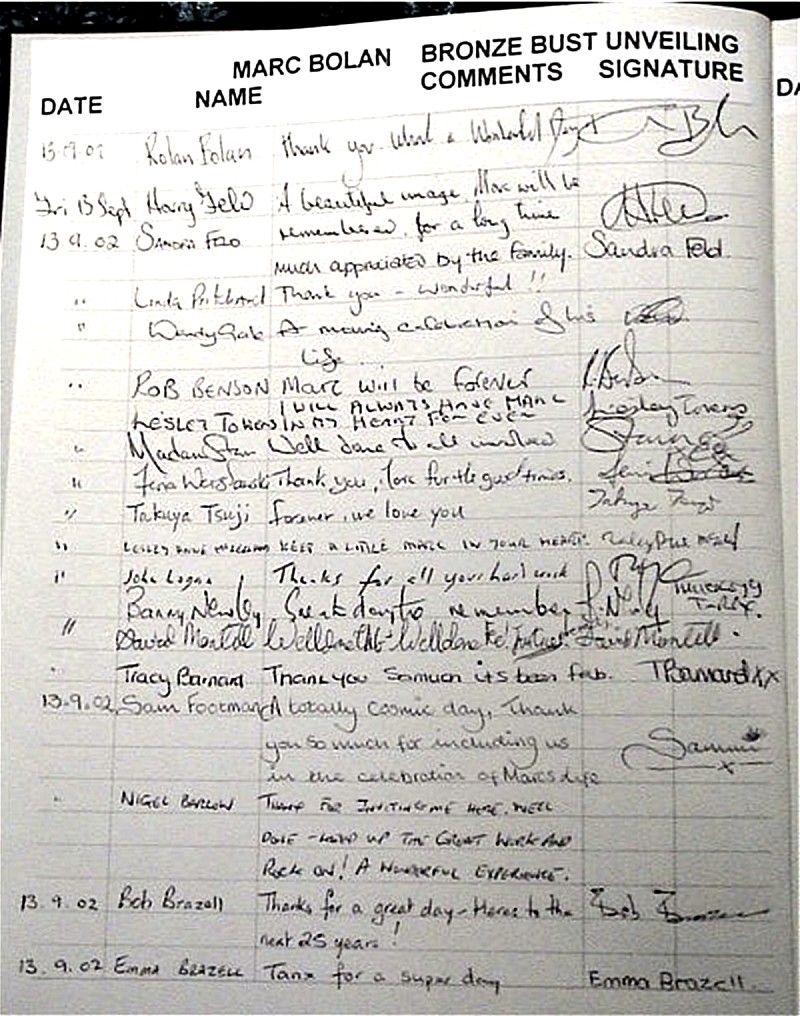 MARC BOLAN BRONZE BUST UNVEILING
DATE NAME COMMENTS SIGNATURE
DA
13.9.02 Rolan Bolan Thank you. What a Wonderful Day
Fri 13 Sept Harry Feld A beautiful image. Marc will be
13.9.02 Sandra Feld remembered for a long time
much appreciated by the family. Sandra Feld
" Linda Pritchard Thank you - wonderful !!
" Wendy A moving celebration of his
life ....
" ROB BENSON Marc will be forever
I WILL ALWAYS HAVE MARC
LESLEY TOWENS IN MY HEART FOR EVER Lesley Towens
" Madam Star Well done to all involved
" Thank you, love for the good times.
" Takuya Tsuji forever, we love you Takuya Tsuji
" LESLEY KEEP A LITTLE MARC IN YOUR HEART.
" John Logan Thanks for all your hard work
Barry Newby Great day to remember
T-REX.
" David Welldone Welldone David
" Tracy Barnard Thankyou Somuch its been fab. TBarnard xx
13.9.02 Sam Footman A totally cosmic day, Thank
you so much for including us Sammi
in the celebration of Marcs life x
" NIGEL BARLOW THANKS FOR INVITING ME HERE. WELL
DONE - KEEP UP THE GREAT WORK AND
ROCK ON! A WONDERFUL EXPERIENCE.
13.9.02 Bob Brazell Thanks for a great day - Heres to the Bob Brazell
next 25 years!
13.9.02 EMMA BRAZELL Tanx for a super day Emma Brazell.